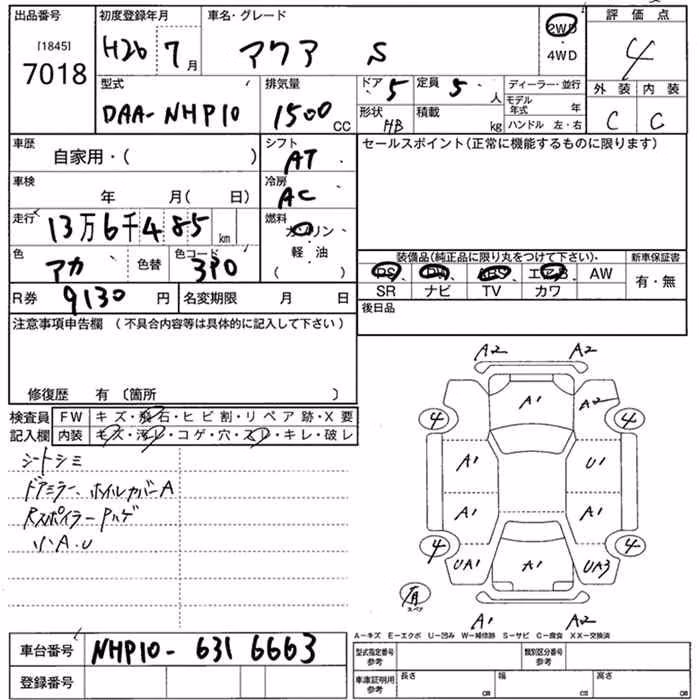 出品番号 初度登録年月 車名・グレード 評価点
[1845] 7018 H26 7月 アクア S 2WD・4WD 4
型式 排気量 ドア 5 定員 5人 ディーラー・並行 外装 内装
DAA-NHP10 1500CC 形状 HB 積載 kg モデル年式 年 ハンドル 左・右 C C
車歴 自家用・( ) シフト AT セールスポイント(正常に機能するものに限ります)
車検 年 月( 日) 冷房 AC
走行 13万6千485km 燃料 ガソリン
色 アカ 色替 色コード 3P0 軽・油 ( )
装備品(純正品に限り丸をつけて下さい)・ 新車保証書
PS PW ABS エアB AW 有・無
SR ナビ TV カワ
R券 9130円 名変期限 月 日 後日品
注意事項申告欄 (不具合内容等は具体的に記入して下さい)
修復歴 有 〔箇所 〕
検査員 FW キズ・飛石・ヒビ割・リペア跡・X要
記入欄 内装 キズ・汚レ・コゲ・穴・スレ・キレ・破レ
シートシミ
ドアミラー、ホイルカバーA
RスポイラーPハゲ
小A.U
A2 A2
A1 A2
4 4
A1 U1
A1 A1
4 4
UA1 A1 UA3
有 スペア
A1 A2
A-キズ E-エクボ U-凹み W-補修跡 S-サビ C-腐食 XX-交換済
車台番号 NHP10-6316663
型式指定番号 参考 類別区分番号 参考
登録番号
車庫証明用 参考 長さ cm 幅 cm 高さ cm